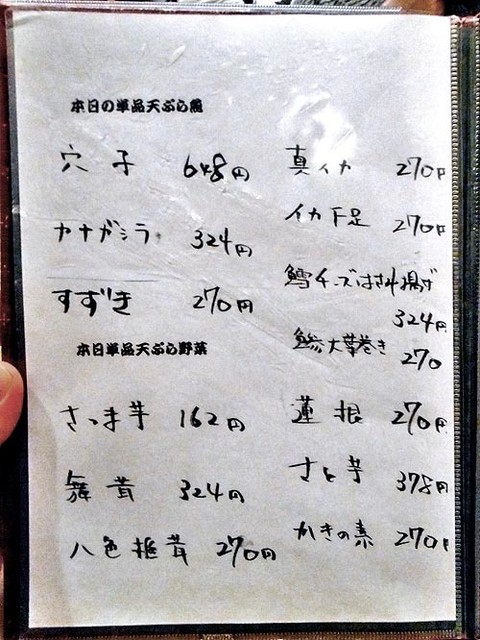 本日の単品天ぷら魚
穴子 648円
カナガシラ 324円
すずき 270円
真イカ 270円
イカ下足 270円
鱈チーズはさみ揚げ
324円
鯵大葉巻き 270
本日単品天ぷら野菜
さつま芋 162円
舞茸 324円
八色椎茸 270円
蓮根 270円
さと芋 378円
かきの素 270円